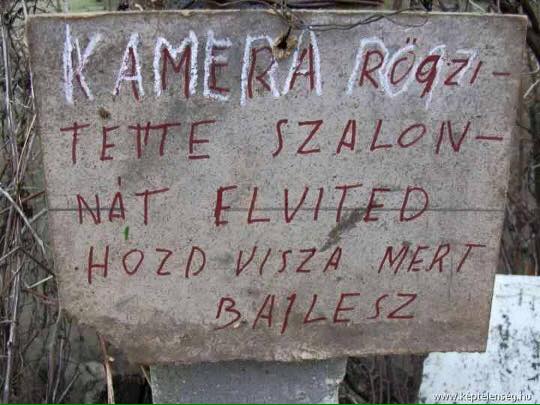 KAMERA RÖGZI-
TETTE SZALON-
NÁT ELVITED
HOZD VISZA MERT
BAJLESZ
www.keptelenseg.hu